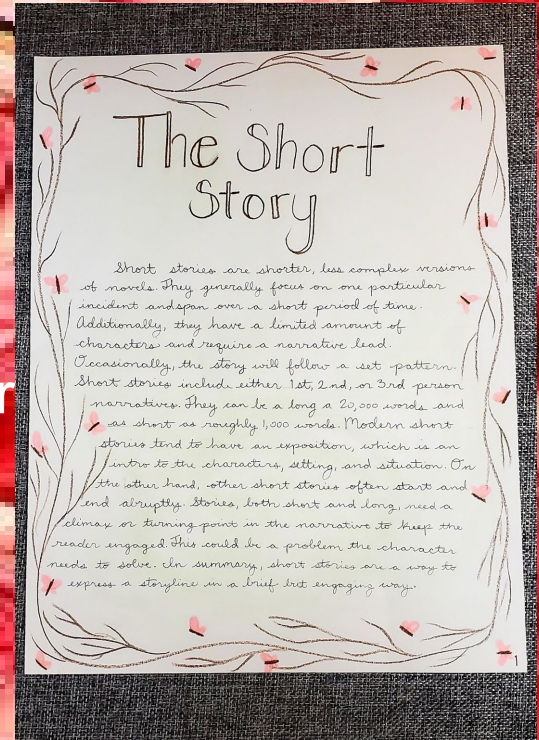 The Short
Story
Short stories are shorter, less complex versions
of novels. They generally focus on one particular
incident and span over a short period of time.
Additionally, they have a limited amount of
characters and require a narrative lead.
Occasionally, the story will follow a set pattern.
Short stories include either 1st, 2nd, or 3rd person
narratives. They can be a long a 20,000 words and
as short as roughly 1,000 words. Modern short
stories tend to have an exposition, which is an
intro to the characters, setting, and situation. On
the other hand, other short stories often start and
end abruptly. Stories, both short and long, need a
climax or turning point in the narrative to keep the
reader engaged. This could be a problem the character
needs to solve. In summary, short stories are a way to
express a storyline in a brief but engaging way.
1